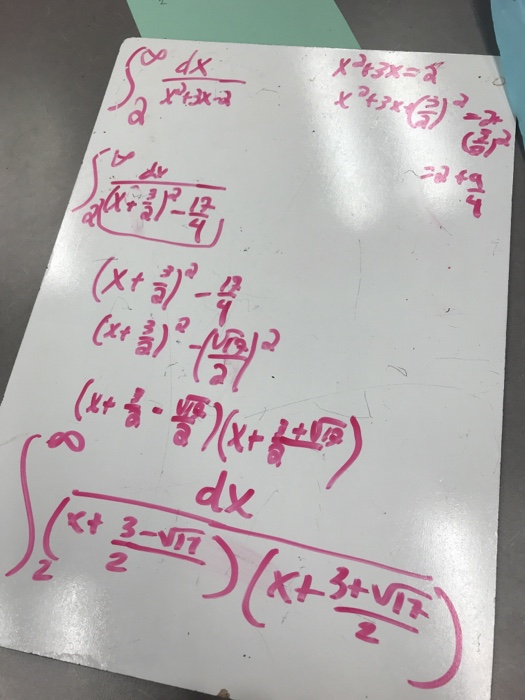 ∫₂^∞ dx/(x²+3x-2)
x²+3x=2
x²+3x+(3/2)²=2+(3/2)²
=2+9/4
∫₂^∞ dx/((x+3/2)²-17/4)
(x+3/2)²-17/4
(x+3/2)²-(√17/2)²
(x+3/2-√17/2)(x+(3+√17)/2)
∫₂^∞ dx/((x+(3-√17)/2)(x+(3+√17)/2))